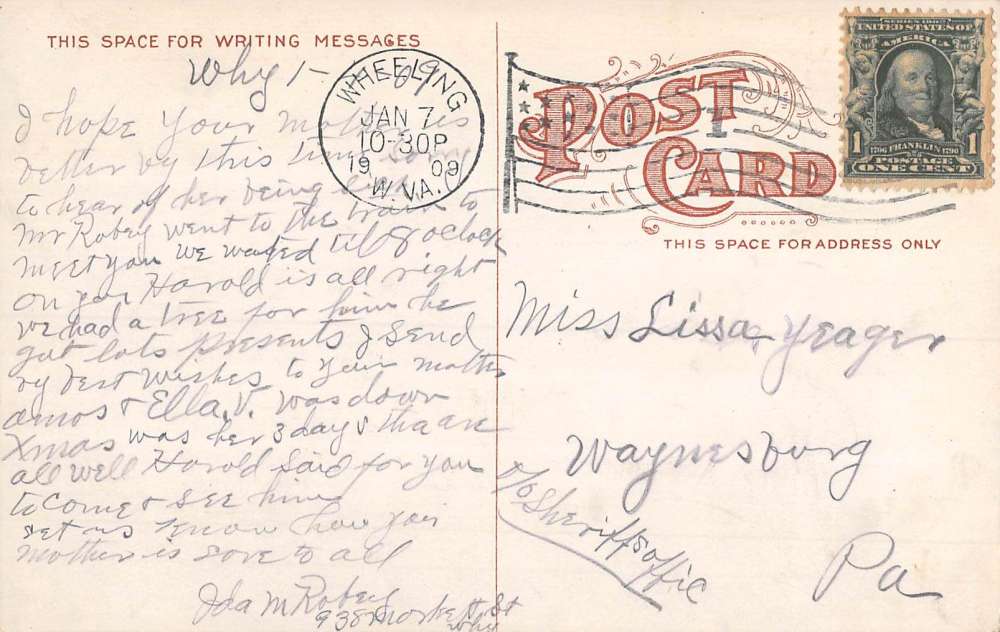 THIS SPACE FOR WRITING MESSAGES
Whg 1- 09
I hope your mother is
better by this time sorry
to hear of her being
Mr Robey went to the train to
meet you we wated til 8 oclock
on you Harold is all right
we had a tree for him he
got lots presents I send
my best wishes to your mother
amos & Ella. V. was down
Xmas was her 3 days tha are
all well Harold said for you
to come & see him
let us know how your
mother is love to all
Ida M Robey
938 Market St
Whg
WHEELING
JAN 7
10-30P
19 09
W. VA.
POST
CARD
SERIES 1902
UNITED STATES OF
AMERICA
1 1706 FRANKLIN 1790 1
POSTAGE
ONE CENT
THIS SPACE FOR ADDRESS ONLY
Miss Lissa Yeager
Waynesburg
c/o Sheriffs offic
Pa